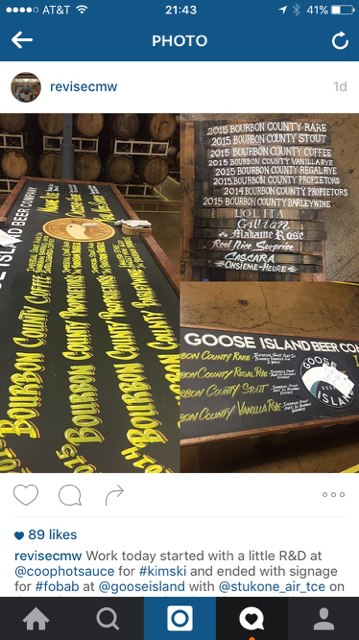 AT&T
21:43
41%
PHOTO
revisecmw
1d
GOOSE ISLAND BEER COMPANY
BOURBON COUNTY COFFEE
BOURBON COUNTY PROPRIETORS
2014 BOURBON COUNTY PROPRIETORS
BOURBON COUNTY BARLEYWINE
2015 BOURBON COUNTY RARE
2015 BOURBON COUNTY STOUT
2015 BOURBON COUNTY COFFEE
2015 BOURBON COUNTY VANILLA RYE
2015 BOURBON COUNTY REGAL RYE
2015 BOURBON COUNTY PROPIETORS
2014 BOURBON COUNTY PROPIETORS
2015 BOURBON COUNTY BARLEYWINE
LOLITA
Gillian
Madame Rose
Reel Nice Surprise
CASCARA
ONSIEME-HEURE
GOOSE ISLAND BEER CO
BON COUNTY RARE
BON COUNTY REGAL RYE
BON COUNTY STOUT
BON COUNTY VANILLA RYE
GOOSE
ISLA
89 likes
revisecmw Work today started with a little R&D at
@coophotsauce for #kimski and ended with signage
for #fobab at @gooseisland with @stukone_air_tce on